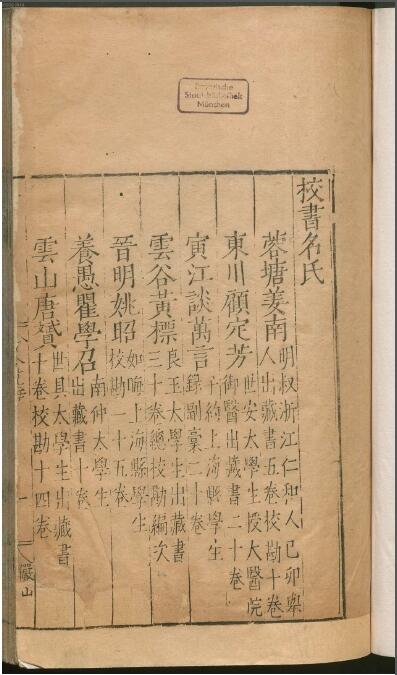 Bayerische
Staatsbibliothek
München
校書名氏
蓉塘姜南明叔浙江仁和人己卯舉
人出藏書五卷校勘十卷
東川顧定芳世安太學生授太醫院
御醫出藏書二十卷
寅江談萬言上海縣學生
錄副稾二十卷
雲谷黃標良玉太學生出藏書
三十卷總校勘編次
晉明姚昭如晦上海縣學生
校勘一十五卷
養愚瞿學召南仲太學生
出藏書十卷
雲山唐贇世具太學生出藏書
十卷校勘十四卷
儼山